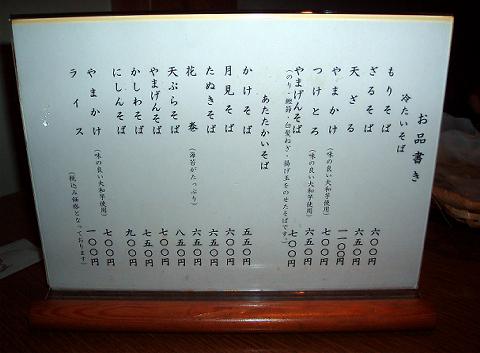 お品書き
冷たいそば
もりそば 六〇〇円
ざるそば 六五〇円
天ざる 一一〇〇円
やまかけ（味の良い大和芋使用） 七〇〇円
つけとろ（味の良い大和芋使用） 六五〇円
やまげんそば 七〇〇円
（のり・鰹節・白髪ねぎ・揚げ玉をのせたそばです）
あたたかいそば
かけそば 五五〇円
月見そば 六〇〇円
たぬきそば 六五〇円
花巻（海苔がたっぷり） 六五〇円
天ぷらそば 八五〇円
やまげんそば 七〇〇円
かしわそば 七五〇円
にしんそば 九〇〇円
やまかけ（味の良い大和芋使用） 七〇〇円
ライス 一〇〇円
（税込み価格となっております）